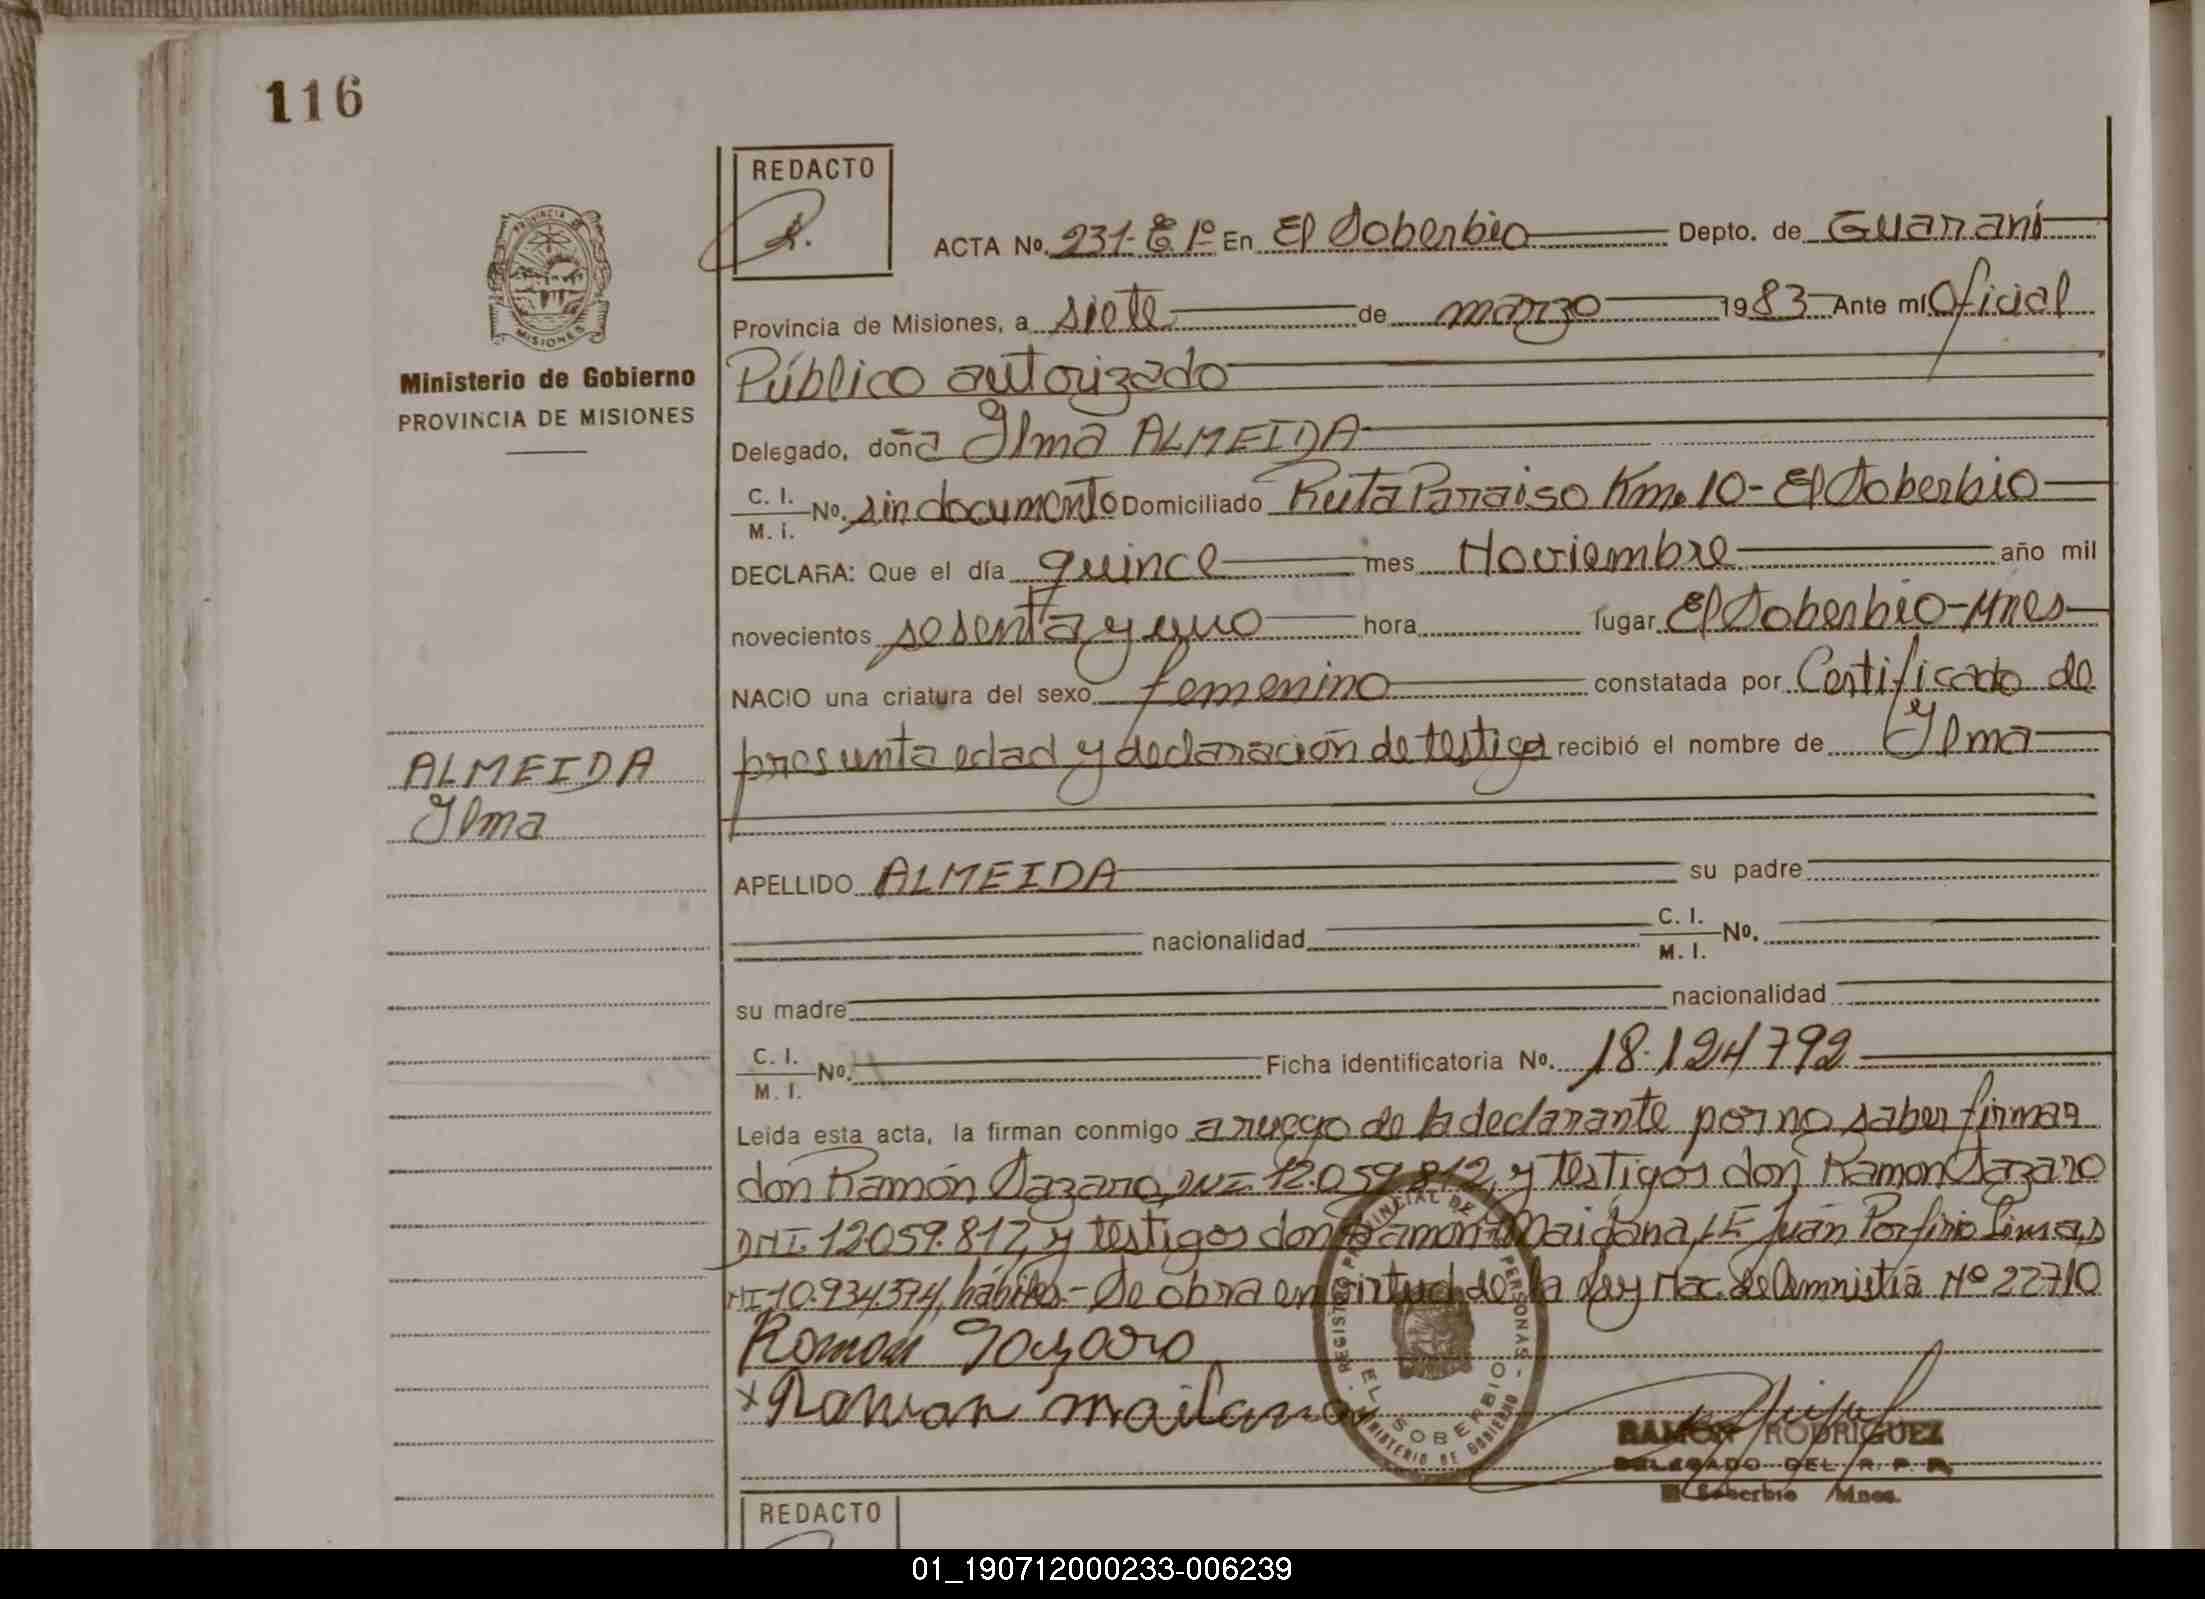 116
REDACTO
ACTA No. 231-E 1º En El Soberbio Depto. de Guaraní
PROVINCIA DE
MISIONES
Provincia de Misiones, a siete de marzo 1983 Ante mí Oficial
Ministerio de Gobierno
Público autorizado
PROVINCIA DE MISIONES
Delegado, doña Ylma ALMEIDA
C. I.
M. I. No. sin documento Domiciliado Ruta Paraiso Km. 10 - El Soberbio
DECLARA: Que el día quince mes Noviembre año mil
novecientos sesenta y uno hora lugar El Soberbio-Mnes
NACIO una criatura del sexo femenino constatada por Certificado de
presunta edad y declaración de testigos recibió el nombre de Ylma
ALMEIDA
Ylma
APELLIDO ALMEIDA su padre
nacionalidad C. I.
M. I. No.
su madre nacionalidad
C. I.
M. I. No. Ficha identificatoria No. 18.124792
Leída esta acta, la firman conmigo a ruego de la declarante por no saber firmar
don Ramón Lazaro, 12.059.812, y testigos don Ramon Lazaro
DNI. 12.059.812, y testigos don Ramon Maidana, LE Juán Porfirio
10.934.374, hábiles.- Se obra en virtud de la Ley Nac. de Amnistia Nº 22710
Ramon
x Ramon maidana
REGISTRO PROVINCIAL DE PERSONAS
EL SOBERBIO
MINISTERIO DE GOBIERNO
RAMON RODRIGUEZ
DELEGADO DEL R. P. P.
El Soberbio Mnes.
REDACTO
01_190712000233-006239